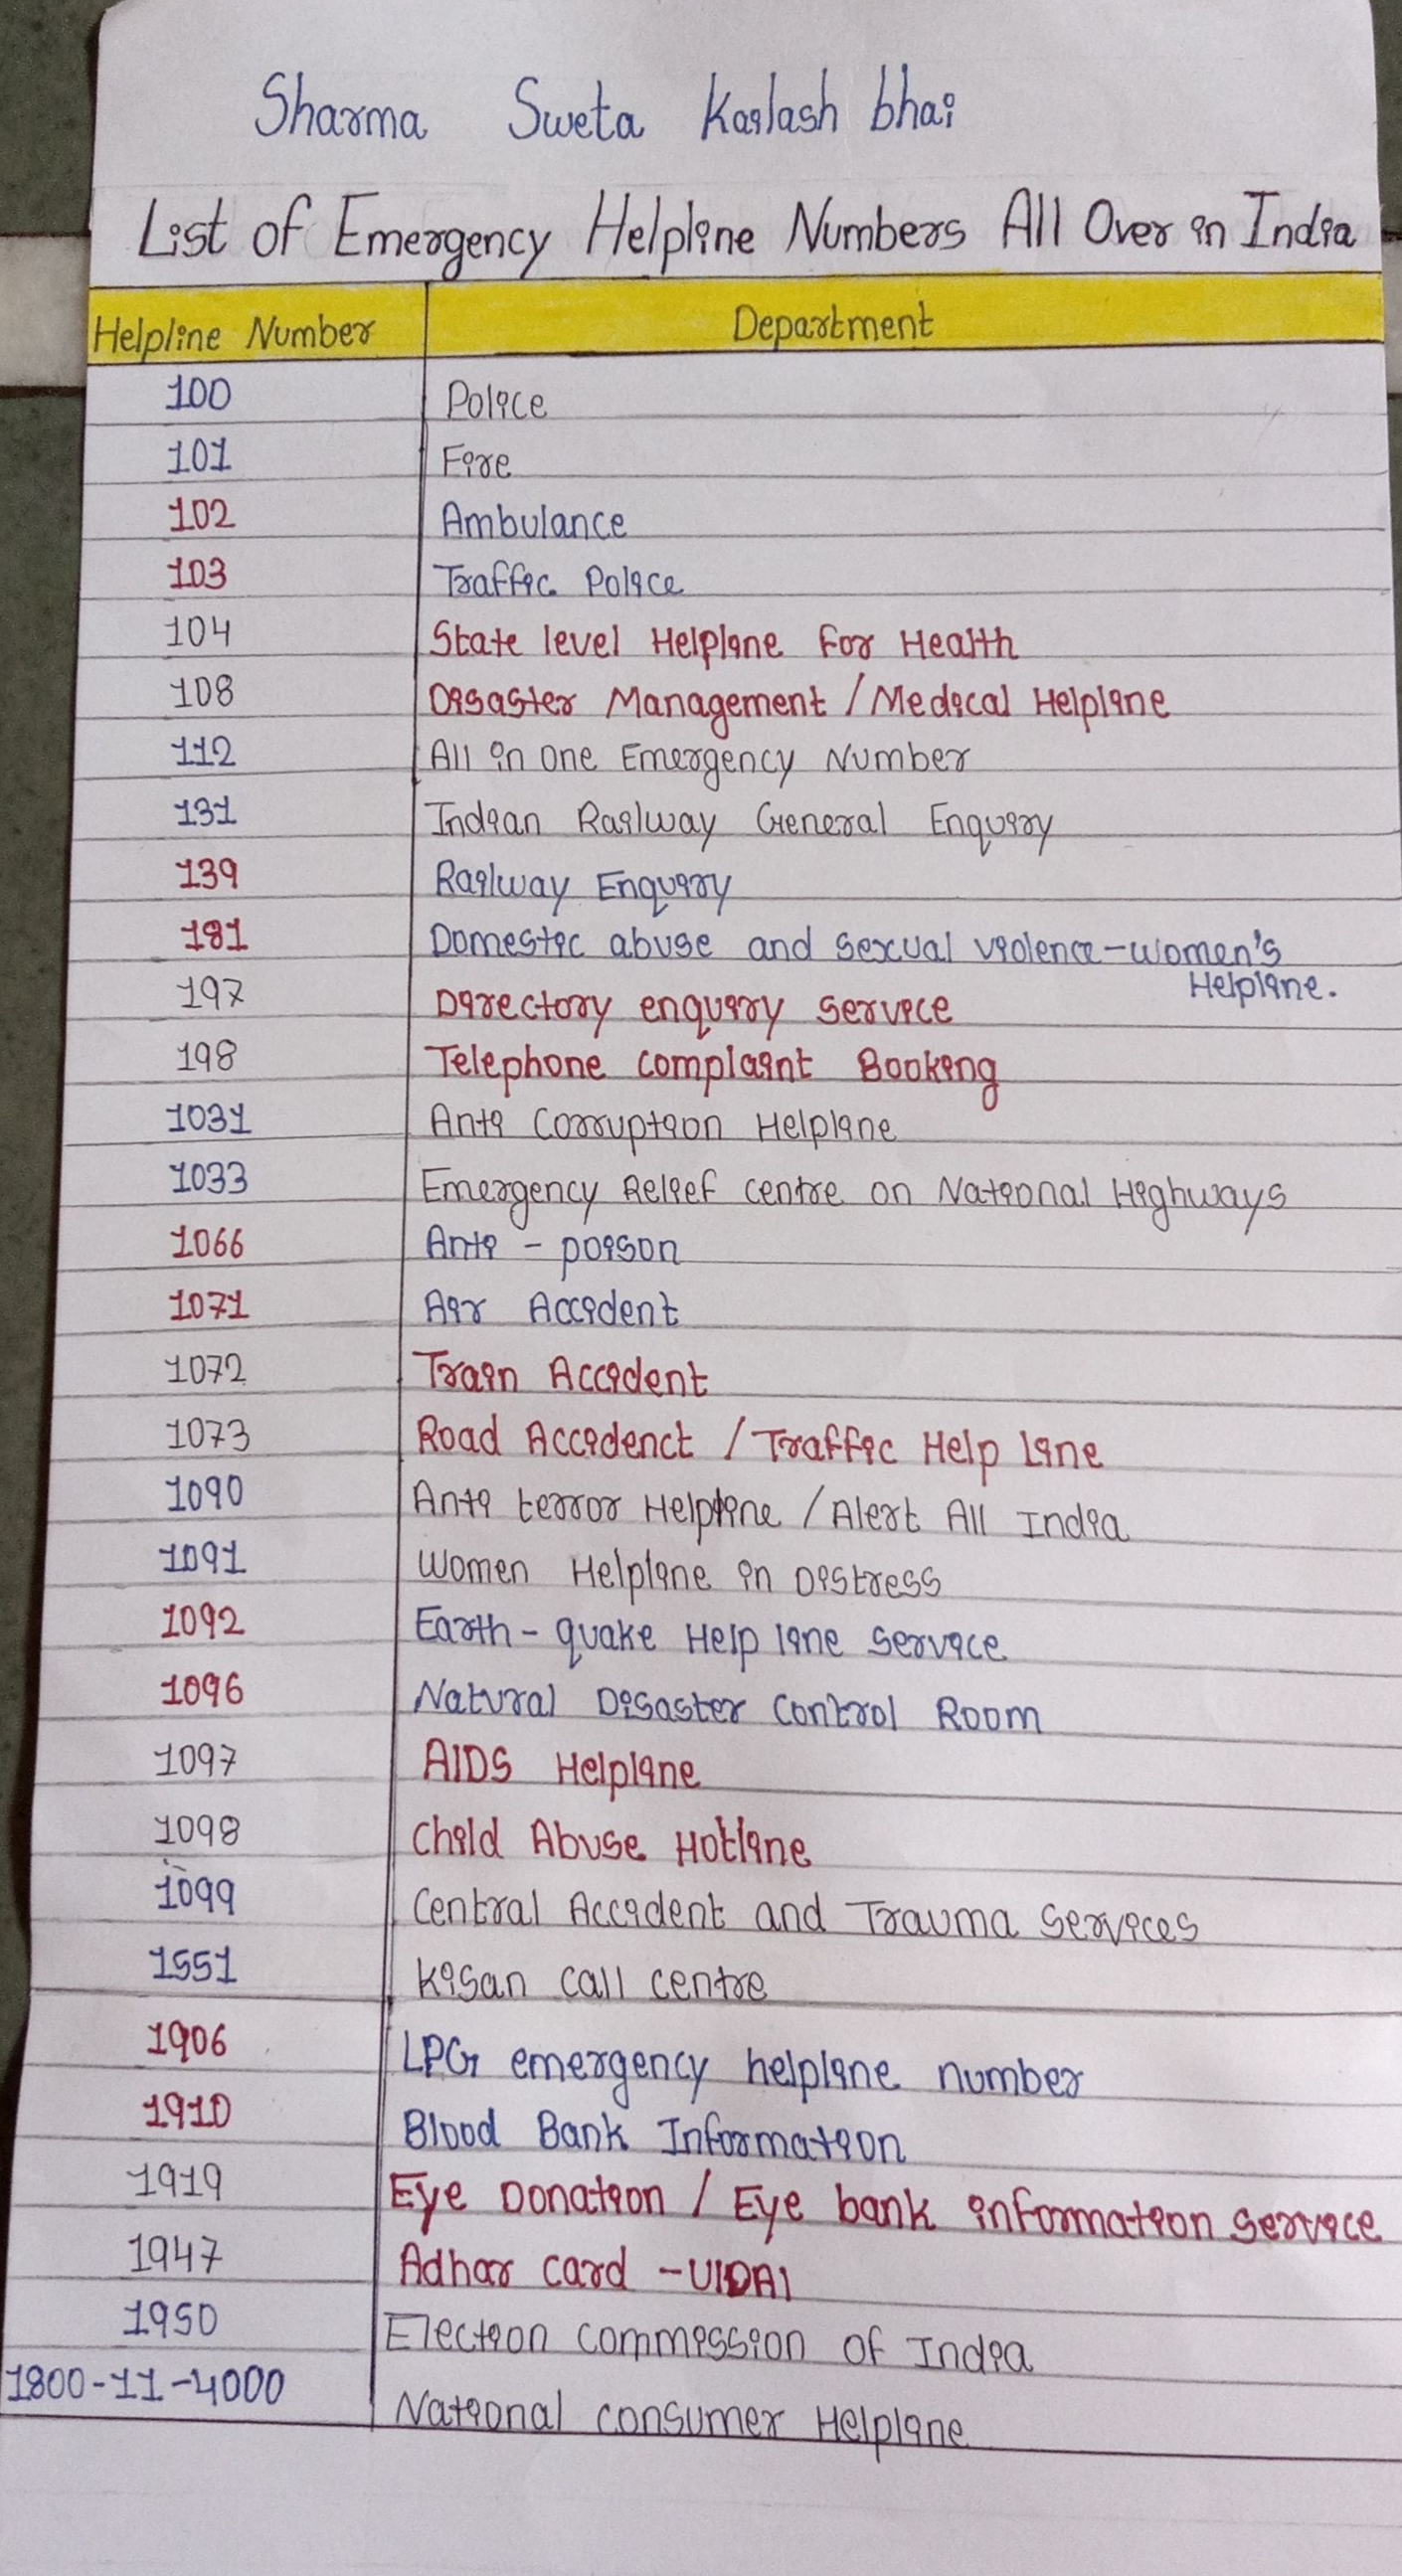 Sharma Sweta Kailash bhai
List of Emergency Helpline Numbers All Over in India
Helpline Number Department
100 Police
101 Fire
102 Ambulance
103 Traffic Police
104 State level Helpline For Health
108 Disaster Management / Medical Helpline
112 All in one Emergency Number
131 Indian Railway General Enquiry
139 Railway Enquiry
181 Domestic abuse and sexual violence-women's
Helpline.
197 Directory enquiry service
198 Telephone complaint Booking
1031 Anti Corruption Helpline
1033 Emergency Relief centre on National Highways
1066 Anti - poison
1071 Air Accident
1072 Train Accident
1073 Road Accidenct / Traffic Help line
1090 Anti terror Helpline / Alert All India
1091 Women Helpline in Distress
1092 Earth - quake Help line service
1096 Natural Disaster Control Room
1097 AIDS Helpline
1098 Child Abuse Hotline
1099 Central Accident and Trauma Services
1551 Kisan call centre
1906 LPG emergency helpline number
1910 Blood Bank Information
1919 Eye Donation / Eye bank information service
1947 Adhar card - UIDAI
1950 Election commission of India
1800-11-4000 National consumer Helpline